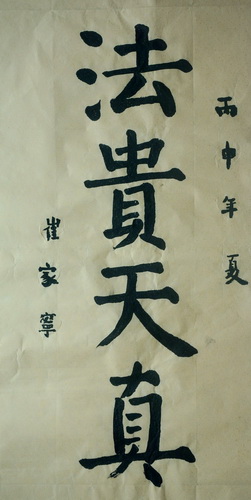 丙申年夏
法貴天真
崔家寧